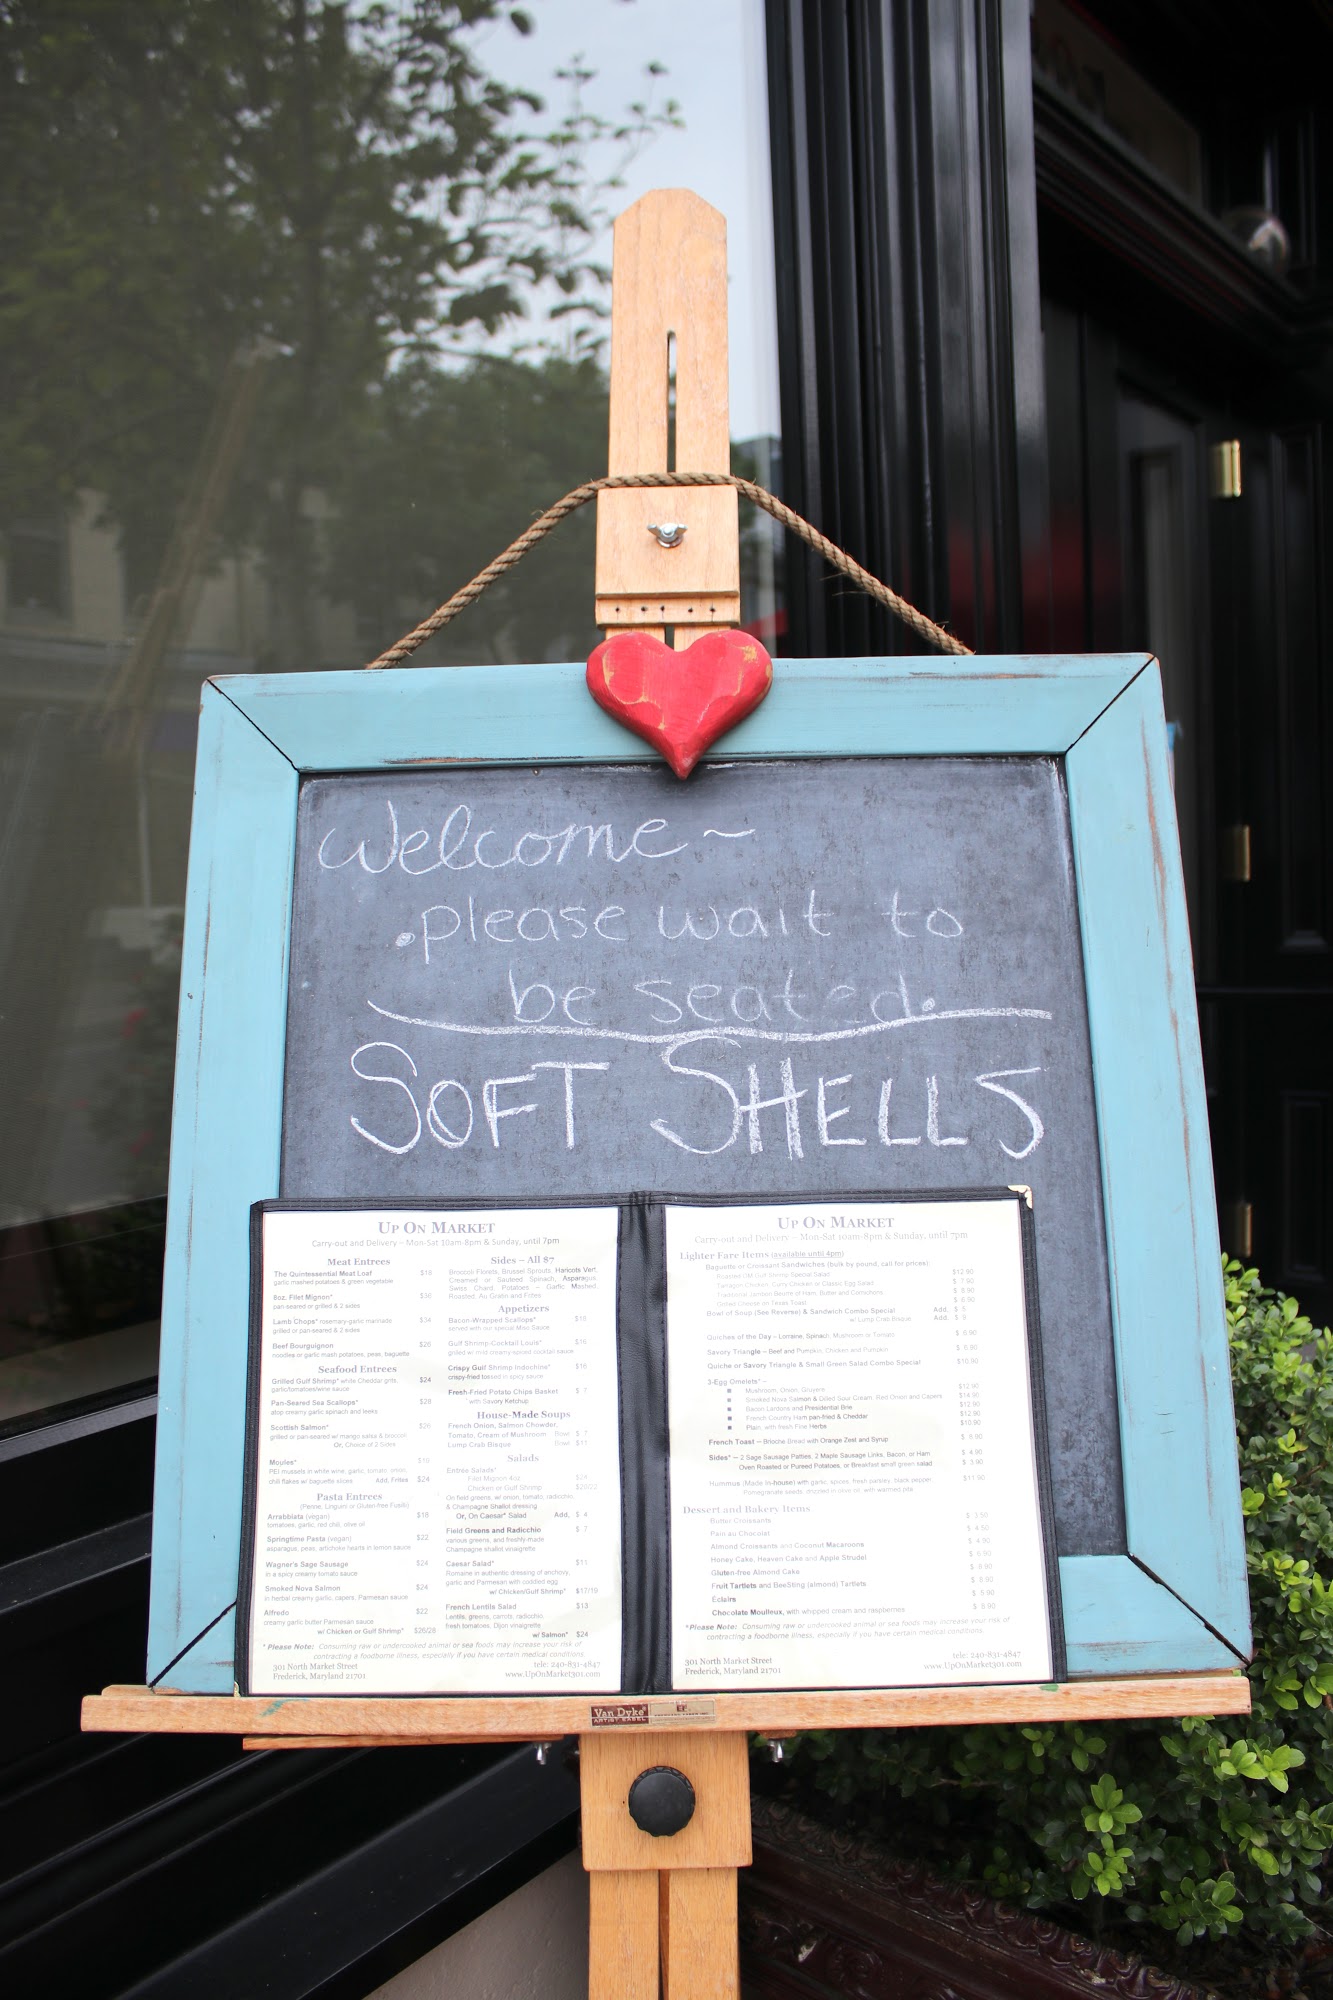 Welcome ~
.please wait to
be seated.
SOFT SHELLS
UP ON MARKET
Carry-out and Delivery – Mon-Sat 10am-8pm & Sunday, until 7pm
Meat Entrees
The Quintessential Meat Loaf $18
garlic mashed potatoes & green vegetable
8oz. Filet Mignon* $36
pan-seared or grilled & 2 sides
Lamb Chops* rosemary-garlic marinade $34
grilled or pan-seared & 2 sides
Beef Bourguignon $26
noodles or garlic mash potatoes, peas, baguette
Seafood Entrees
Grilled Gulf Shrimp* white Cheddar grits, $24
garlic/tomatoes/wine sauce
Pan-Seared Sea Scallops* $28
atop creamy garlic spinach and leeks
Scottish Salmon* $26
grilled or pan-seared w/ mango salsa & broccoli
Or, Choice of 2 Sides
Moules*
PEI mussels in white wine, garlic, tomato, onion,
chili flakes w/ baguette slices Add, Frites $24
Pasta Entrees
(Penne, Linguini or Gluten-free Fusilli)
Arrabbiata (vegan) $18
tomatoes, garlic, red chili, olive oil
Springtime Pasta (vegan) $22
asparagus, peas, artichoke hearts in lemon sauce
Wagner's Sage Sausage $24
in a spicy creamy tomato sauce
Smoked Nova Salmon $24
in herbal creamy garlic, capers, Parmesan sauce
Alfredo $22
creamy garlic butter Parmesan sauce
w/ Chicken or Gulf Shrimp* $26/28
Sides – All $7
Broccoli Florets, Brussel Sprouts, Haricots Vert,
Creamed or Sauteed Spinach, Asparagus,
Swiss Chard, Potatoes – Garlic Mashed,
Roasted, Au Gratin and Frites
Appetizers
Bacon-Wrapped Scallops* $16
served with our special Miso Sauce
Gulf Shrimp Cocktail Louis* $16
grilled w/ mild creamy-spiced cocktail sauce
Crispy Gulf Shrimp Indochine* $16
crispy-fried tossed in spicy sauce
Fresh-Fried Potato Chips Basket $ 7
with Savory Ketchup
House-Made Soups
French Onion, Salmon Chowder,
Tomato, Cream of Mushroom Bowl $ 7
Lump Crab Bisque Bowl $11
Salads
Entrée Salads*
Filet Mignon 4oz. $24
Chicken or Gulf Shrimp $20/22
On field greens, w/ onion, tomato, radicchio,
& Champagne Shallot dressing
Or, On Caesar* Salad Add, $ 4
Field Greens and Radicchio $ 7
various greens, and freshly-made
Champagne shallot vinaigrette
Caesar Salad* $11
Romaine in authentic dressing of anchovy,
garlic and Parmesan with coddled egg
w/ Chicken/Gulf Shrimp* $17/19
French Lentils Salad $13
Lentils, greens, carrots, radicchio,
fresh tomatoes, Dijon vinaigrette
w/ Salmon* $24
* Please Note: Consuming raw or undercooked animal or sea foods may increase your risk of
contracting a foodborne illness, especially if you have certain medical conditions.
301 North Market Street tele: 240-831-4847
Frederick, Maryland 21701 www.UpOnMarket301.com
UP ON MARKET
Carry-out and Delivery – Mon-Sat 10am-8pm & Sunday, until 7pm
Lighter Fare Items (available until 4pm)
Baguette or Croissant Sandwiches (bulk by pound, call for prices):
Roasted OM Gulf Shrimp Special Salad $12.90
Tarragon Chicken, Curry Chicken or Classic Egg Salad $ 7.90
Traditional Jambon Beurre of Ham, Butter and Cornichons $ 8.90
Grilled Cheese on Texas Toast $ 6.90
Bowl of Soup (See Reverse) & Sandwich Combo Special Add, $ 5
w/ Lump Crab Bisque Add, $ 9
Quiches of the Day – Lorraine, Spinach, Mushroom or Tomato $ 8.90
Savory Triangle – Beef and Pumpkin, Chicken and Pumpkin
Quiche or Savory Triangle & Small Green Salad Combo Special $10.90
3-Egg Omelets* –
Mushroom, Onion, Gruyere $12.90
Smoked Nova Salmon & Dilled Sour Cream, Red Onion and Capers $14.90
Bacon Lardons and Presidential Brie $12.90
French Country Ham pan-fried & Cheddar $12.90
Plain, with fresh Fine Herbs $10.90
French Toast – Brioche Bread with Orange Zest and Syrup $ 8.90
Sides* – 2 Sage Sausage Patties, 2 Maple Sausage Links, Bacon, or Ham $ 4.90
Oven Roasted or Pureed Potatoes, or Breakfast small green salad $ 3.90
Hummus (Made In-house) with garlic, spices, fresh parsley, black pepper, $11.90
Pomegranate seeds, drizzled in olive oil, with warmed pita
Dessert and Bakery Items
Butter Croissants $ 3.50
Pain au Chocolat $ 4.50
Almond Croissants and Coconut Macaroons $ 4.90
Honey Cake, Heaven Cake and Apple Strudel $ 6.90
Gluten-free Almond Cake $ 8.90
Fruit Tartlets and BeeSting (almond) Tartlets $ 8.90
Eclairs $ 5.90
Chocolate Moulleux, with whipped cream and raspberries $ 8.90
*Please Note: Consuming raw or undercooked animal or sea foods may increase your risk of
contracting a foodborne illness, especially if you have certain medical conditions
301 North Market Street tele: 240-831-4847
Frederick, Maryland 21701 www.UpOnMarket301.com
Van Dyke
ARTIST EASEL